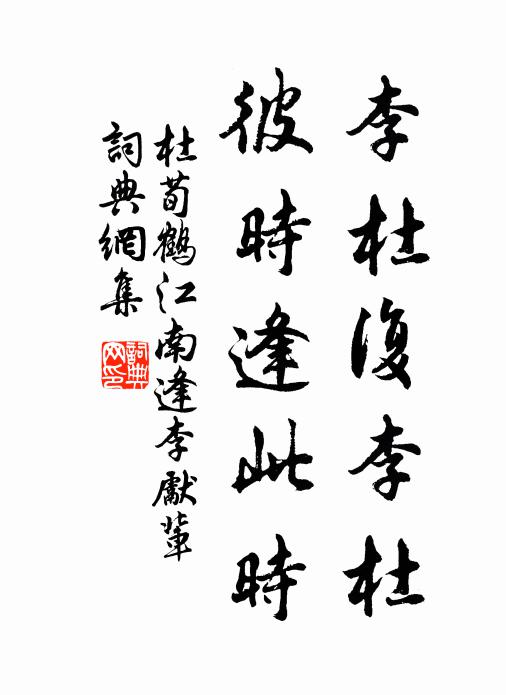 李杜復李杜
彼時逢此時
杜荀鶴江南逢李獻輩
詞典網集
詞典網印